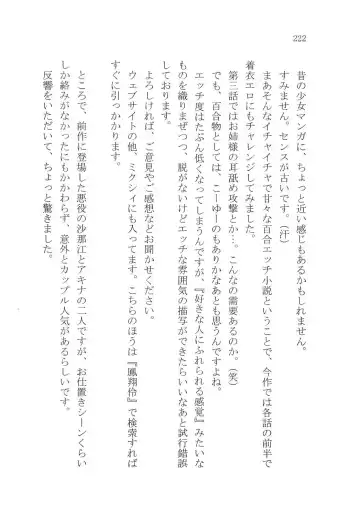 222
昔の少女マンガに、ちょっと近い感じもあるかもしれません。
すみません。センスが古いです。（汗）
まあそんなイチャイチャで甘々な百合エッチ小説ということで、今作では各話の前半で
着衣エロにもチャレンジしてみました。
第三話ではお姉様の耳舐め攻撃とか…。こんなの需要あるのか。（笑）
でも、百合物としては、こーゆーのもありかなあとも思うんですよね。
エッチ度はたぶん低くなってしまうんですが、『好きな人にふれられる感覚』みたいな
ものを織りまぜつつ、脱がないけどエッチな雰囲気の描写ができたらいいなあと試行錯誤
しております。
よろしければ、ご意見やご感想などお聞かせください。
ウェブサイトの他、ミクシィにも入ってます。こちらのほうは『鳳翔伶』で検索すれば
すぐに引っかかります。
ところで、前作に登場した悪役の沙那江とアキナの二人ですが、お仕置きシーンくらい
しか絡みがなかったにもかかわらず、意外とカップル人気があるらしいです。
反響をいただいて、ちょっと驚きました。